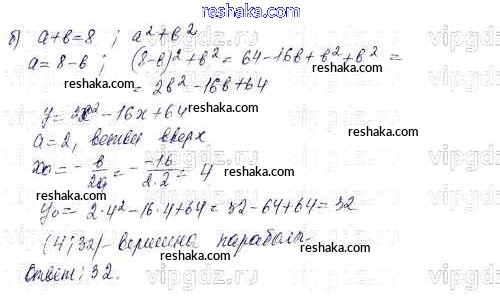 www.reshaka.com
б) a+b=8 ; a²+b²
a=8-b ; (8-b)²+b²=64-16b+b²+b²=
=2b²-16b+64
y=2x²-16x+64
a=2, ветви вверх
x₀=-b/2a=-(-16)/2·2=4
y₀=2·4²-16·4+64=32-64+64=32
(4;32)-вершина параболы
Ответ: 32.
reshaka.com
reshaka.com
reshaka.com
reshaka.com
reshaka.com
reshaka.com
reshaka.com
reshaka.com
vipgdz.ru
vipgdz.ru
vipgdz.ru
vipgdz.ru